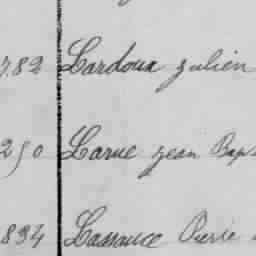 782 Lardoux Julien
250 Larue Jean Bap
894 Lassauce Pierre